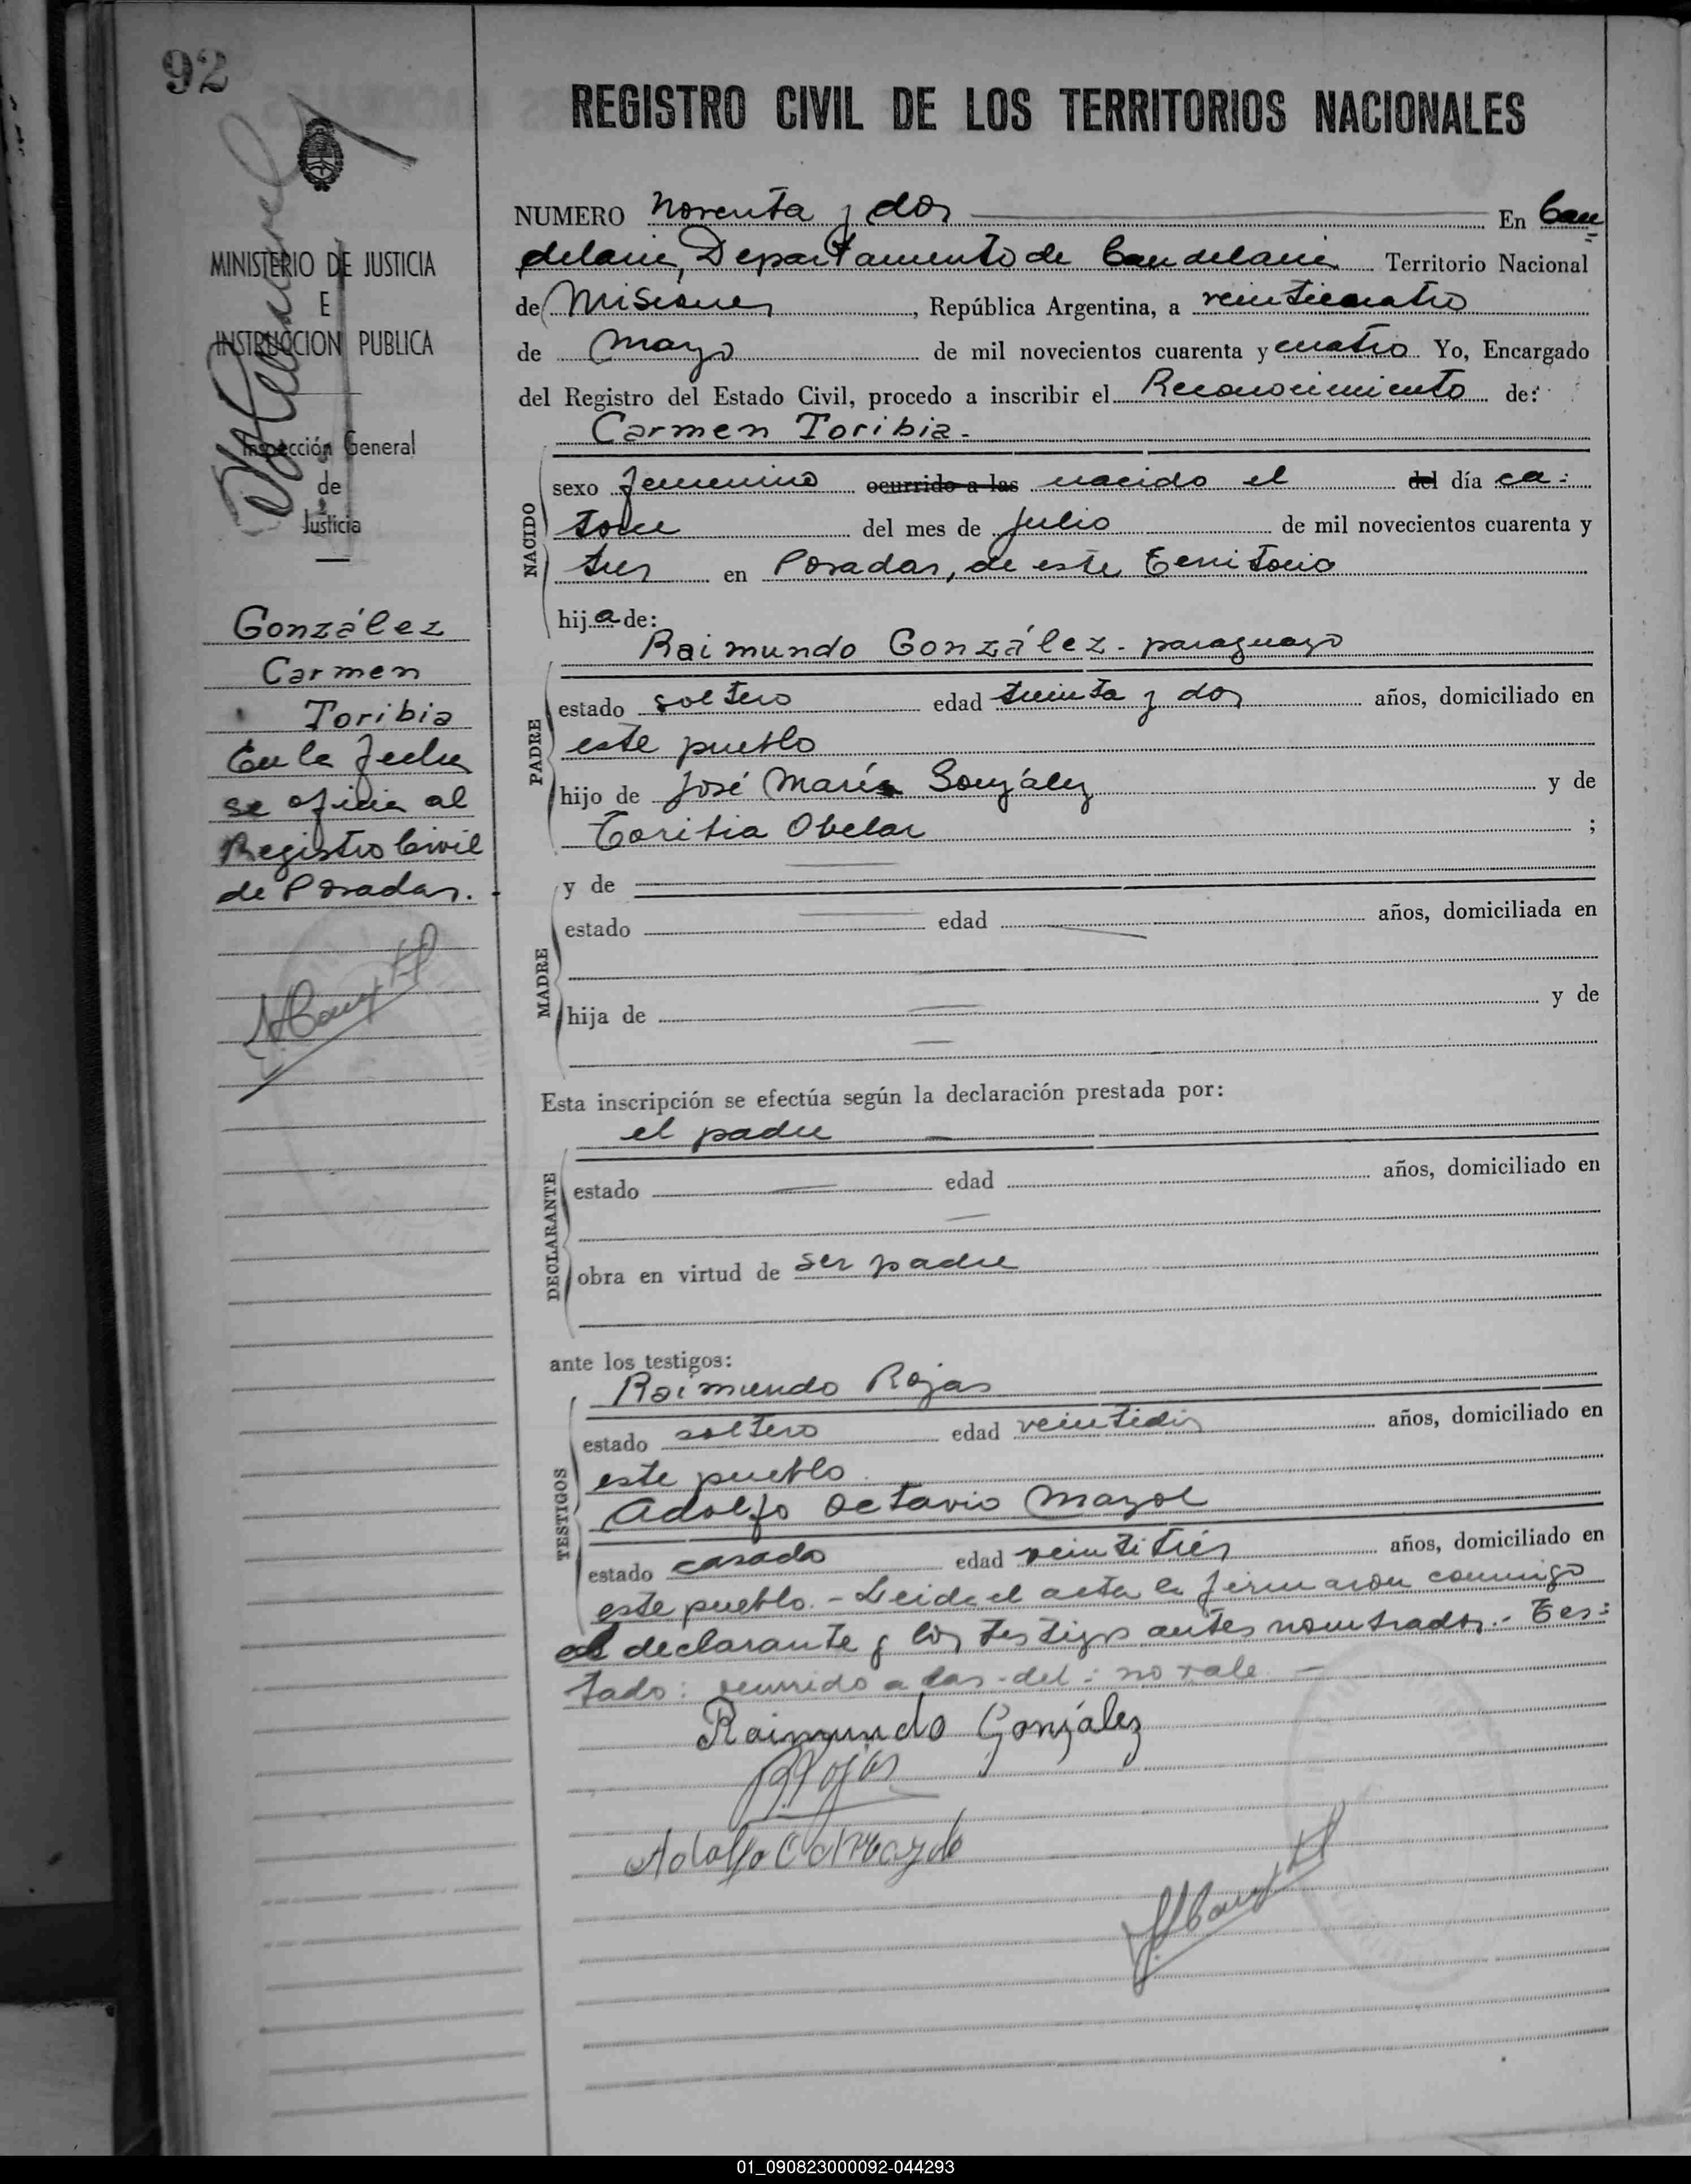 92
REGISTRO CIVIL DE LOS TERRITORIOS NACIONALES
MINISTERIO DE JUSTICIA
E
INSTRUCCION PUBLICA
Inspección General
de
Justicia
González
Carmen
Toribia
En la fecha
se oficia al
Registro Civil
de Posadas.
NUMERO noventa y dos En Can=
delaria, Departamento de Candelaria Territorio Nacional
de Misiones, República Argentina, a veinticuatro
de Mayo de mil novecientos cuarenta y cuatro Yo, Encargado
del Registro del Estado Civil, procedo a inscribir el Reconocimiento de:
Carmen Toribia.-
NACIDO
sexo femenino ocurrido a las nacido el del día ca=
torce del mes de Julio de mil novecientos cuarenta y
tres en Posadas, de este Territorio
hija de:
Raimundo González - paraguayo
PADRE
estado soltero edad treinta y dos años, domiciliado en
este pueblo
hijo de José María González y de
Toribia Obelar ;
y de
MADRE
estado edad años, domiciliada en
hija de y de
Esta inscripción se efectúa según la declaración prestada por:
el padre
DECLARANTE
estado edad años, domiciliado en
obra en virtud de ser padre
ante los testigos:
Raimundo Rojas
TESTIGOS
estado soltero edad veintidós años, domiciliado en
este pueblo.
Adolfo Octavio Mazol
estado casado edad veintitrés años, domiciliado en
este pueblo.- Leida el acta la firmaron conmigo
el declarante y los testigos antes nombrados.- Tes=
tado: ocurrido a las - del: no vale -
Raimundo González
R Rojas
01_090823000092-044293